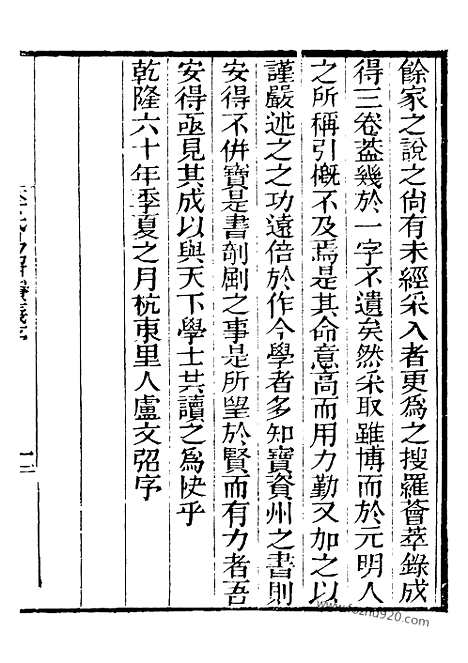 餘家之說之尙有未經采入者更爲之搜羅薈萃錄成
得三卷葢幾於一字不遺矣然采取雖博而於元明人
之所稱引槪不及焉是其命意高而用力勤又加之以
謹嚴述之之功遠倍於作今學者多知寶資州之書則
安得不併寶是書剞劂之事是所望於賢而有力者吾
安得亟見其成以與天下學士共讀之爲快乎
乾隆六十年季夏之月杭東里人盧文弨序
李氏易解賸義序
二
www.fozhu920.com